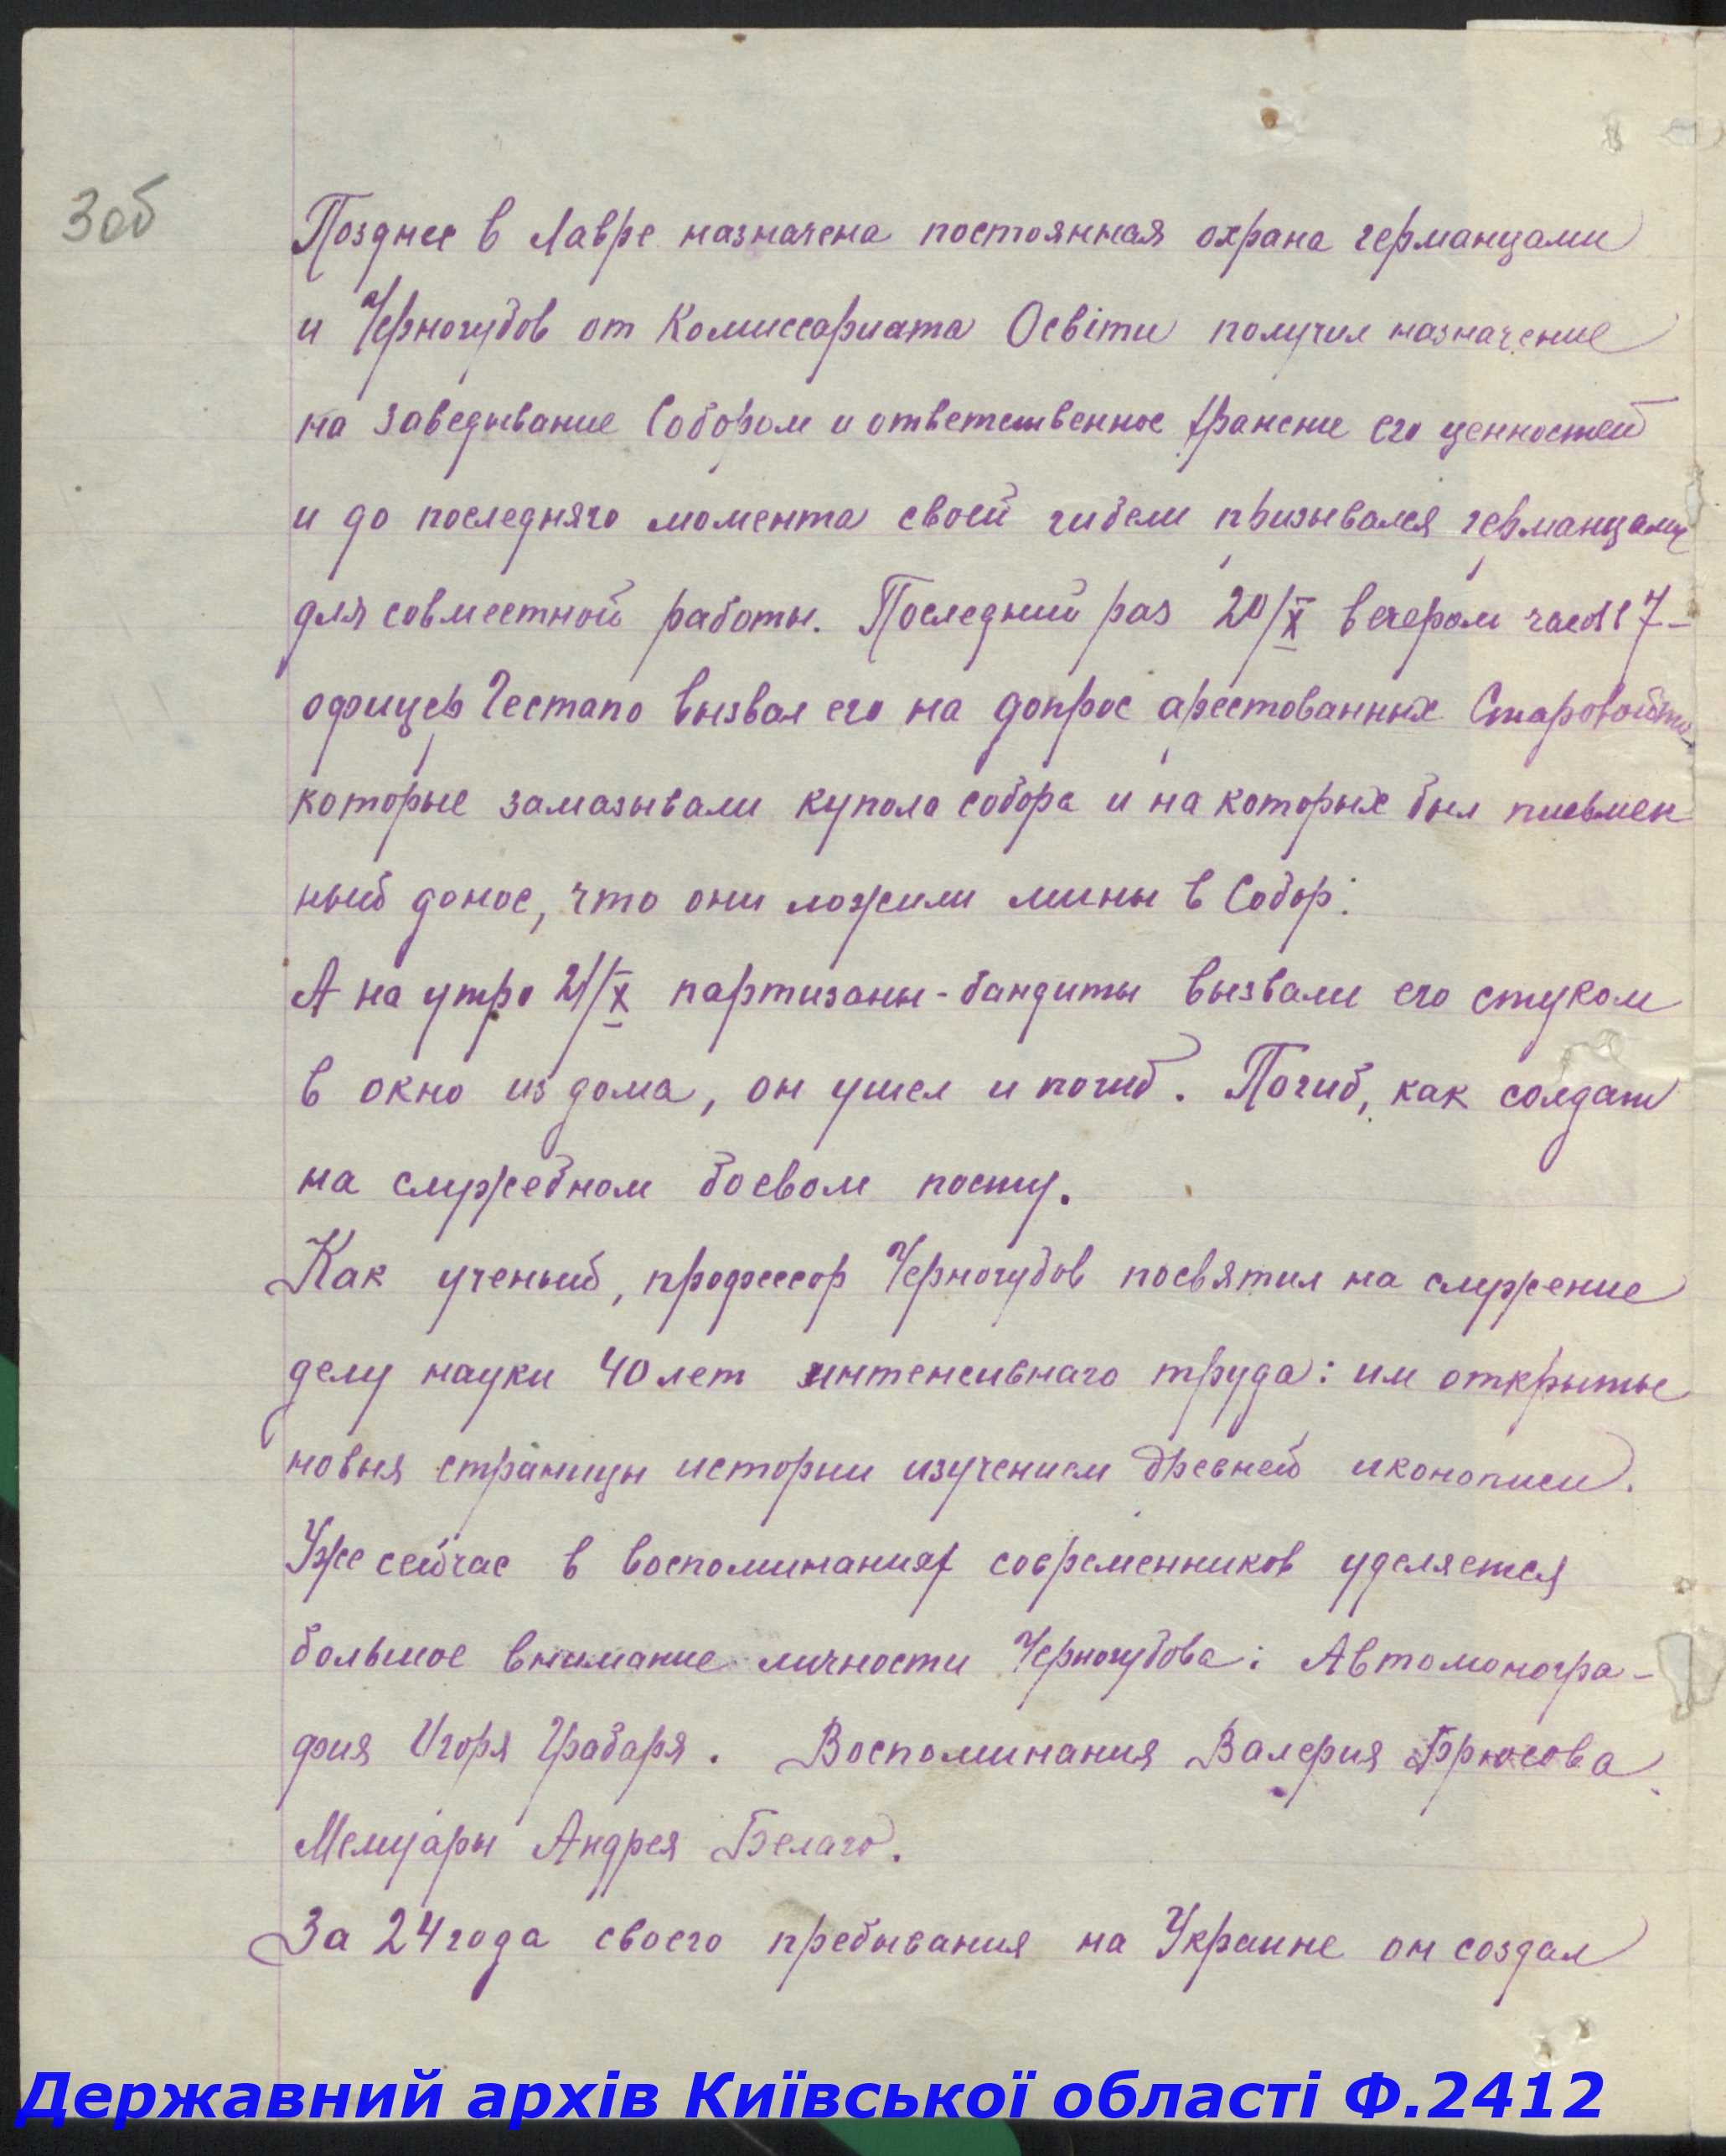 3об
Позднее в Лавре назначена постоянная охрана германцами
и Черногубов от Комиссариата Освіти получил назначение
на заведывание Собором и ответственное хранение его ценностей
и до последняго момента своей гибели призывался германцами
для совместной работы. Последний раз 20/X вечером часов 7-
офицер Гестапо вызвал его на допрос арестованных
которые замазывали купола собора и на которых был письмен
ный донос, что они ложили мины в Собор.
А на утро 21/X партизаны-бандиты вызвали его стуком
в окно из дома, он ушел и погиб. Погиб, как солдат
на служебном боевом посту.
Как ученый, профессор Черногубов посвятил на служение
делу науки 40 лет интенсивнаго труда: им открыты
новыя страницы истории изучением древней иконописи.
Уже сейчас в воспоминаниях современников уделяется
большое внимание личности Черногубова: Автомоногра-
фия Игоря Грабаря. Воспоминания Валерия Брюсова
Мемуары Андрея Белаго.
За 24 года своего пребывания на Украине он создал
Державний архів Київської області Ф.2412